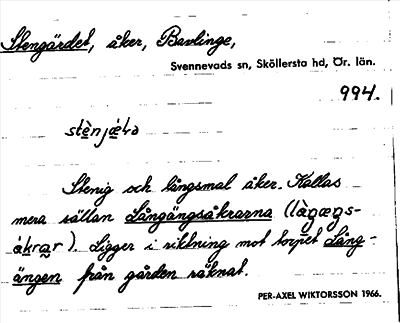 Stengärdet, åker, Bavlinge,
Svennevads sn, Sköllersta hd, Ör. län.
994.
Stenig och långsmal åker. Kallas
mera sällan Långängsåkrarna (làŋæŋs-
åkrar). Ligger i riktning mot torpet Lång-
ängen från gården räknat.
PER-AXEL WIKTORSSON 1966.